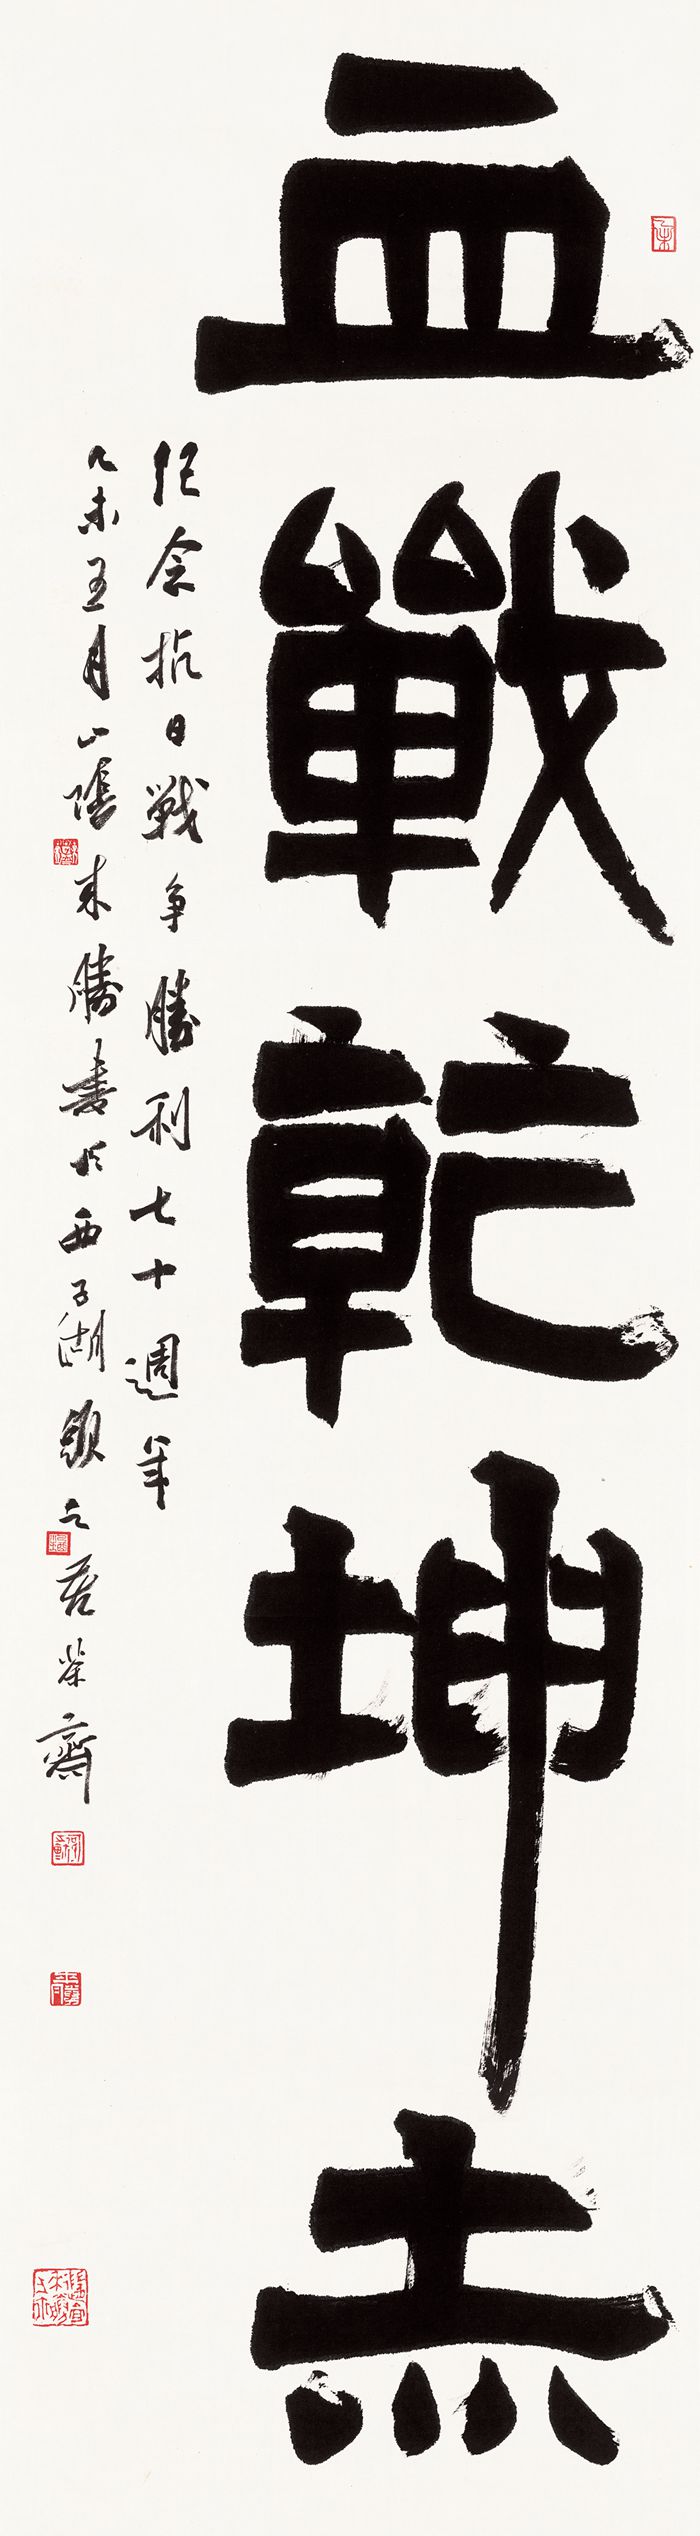 血戰乾坤赤
纪念抗日戰争勝利七十週年
乙未五月山陰朱勝書於西子湖畔之君榮齋